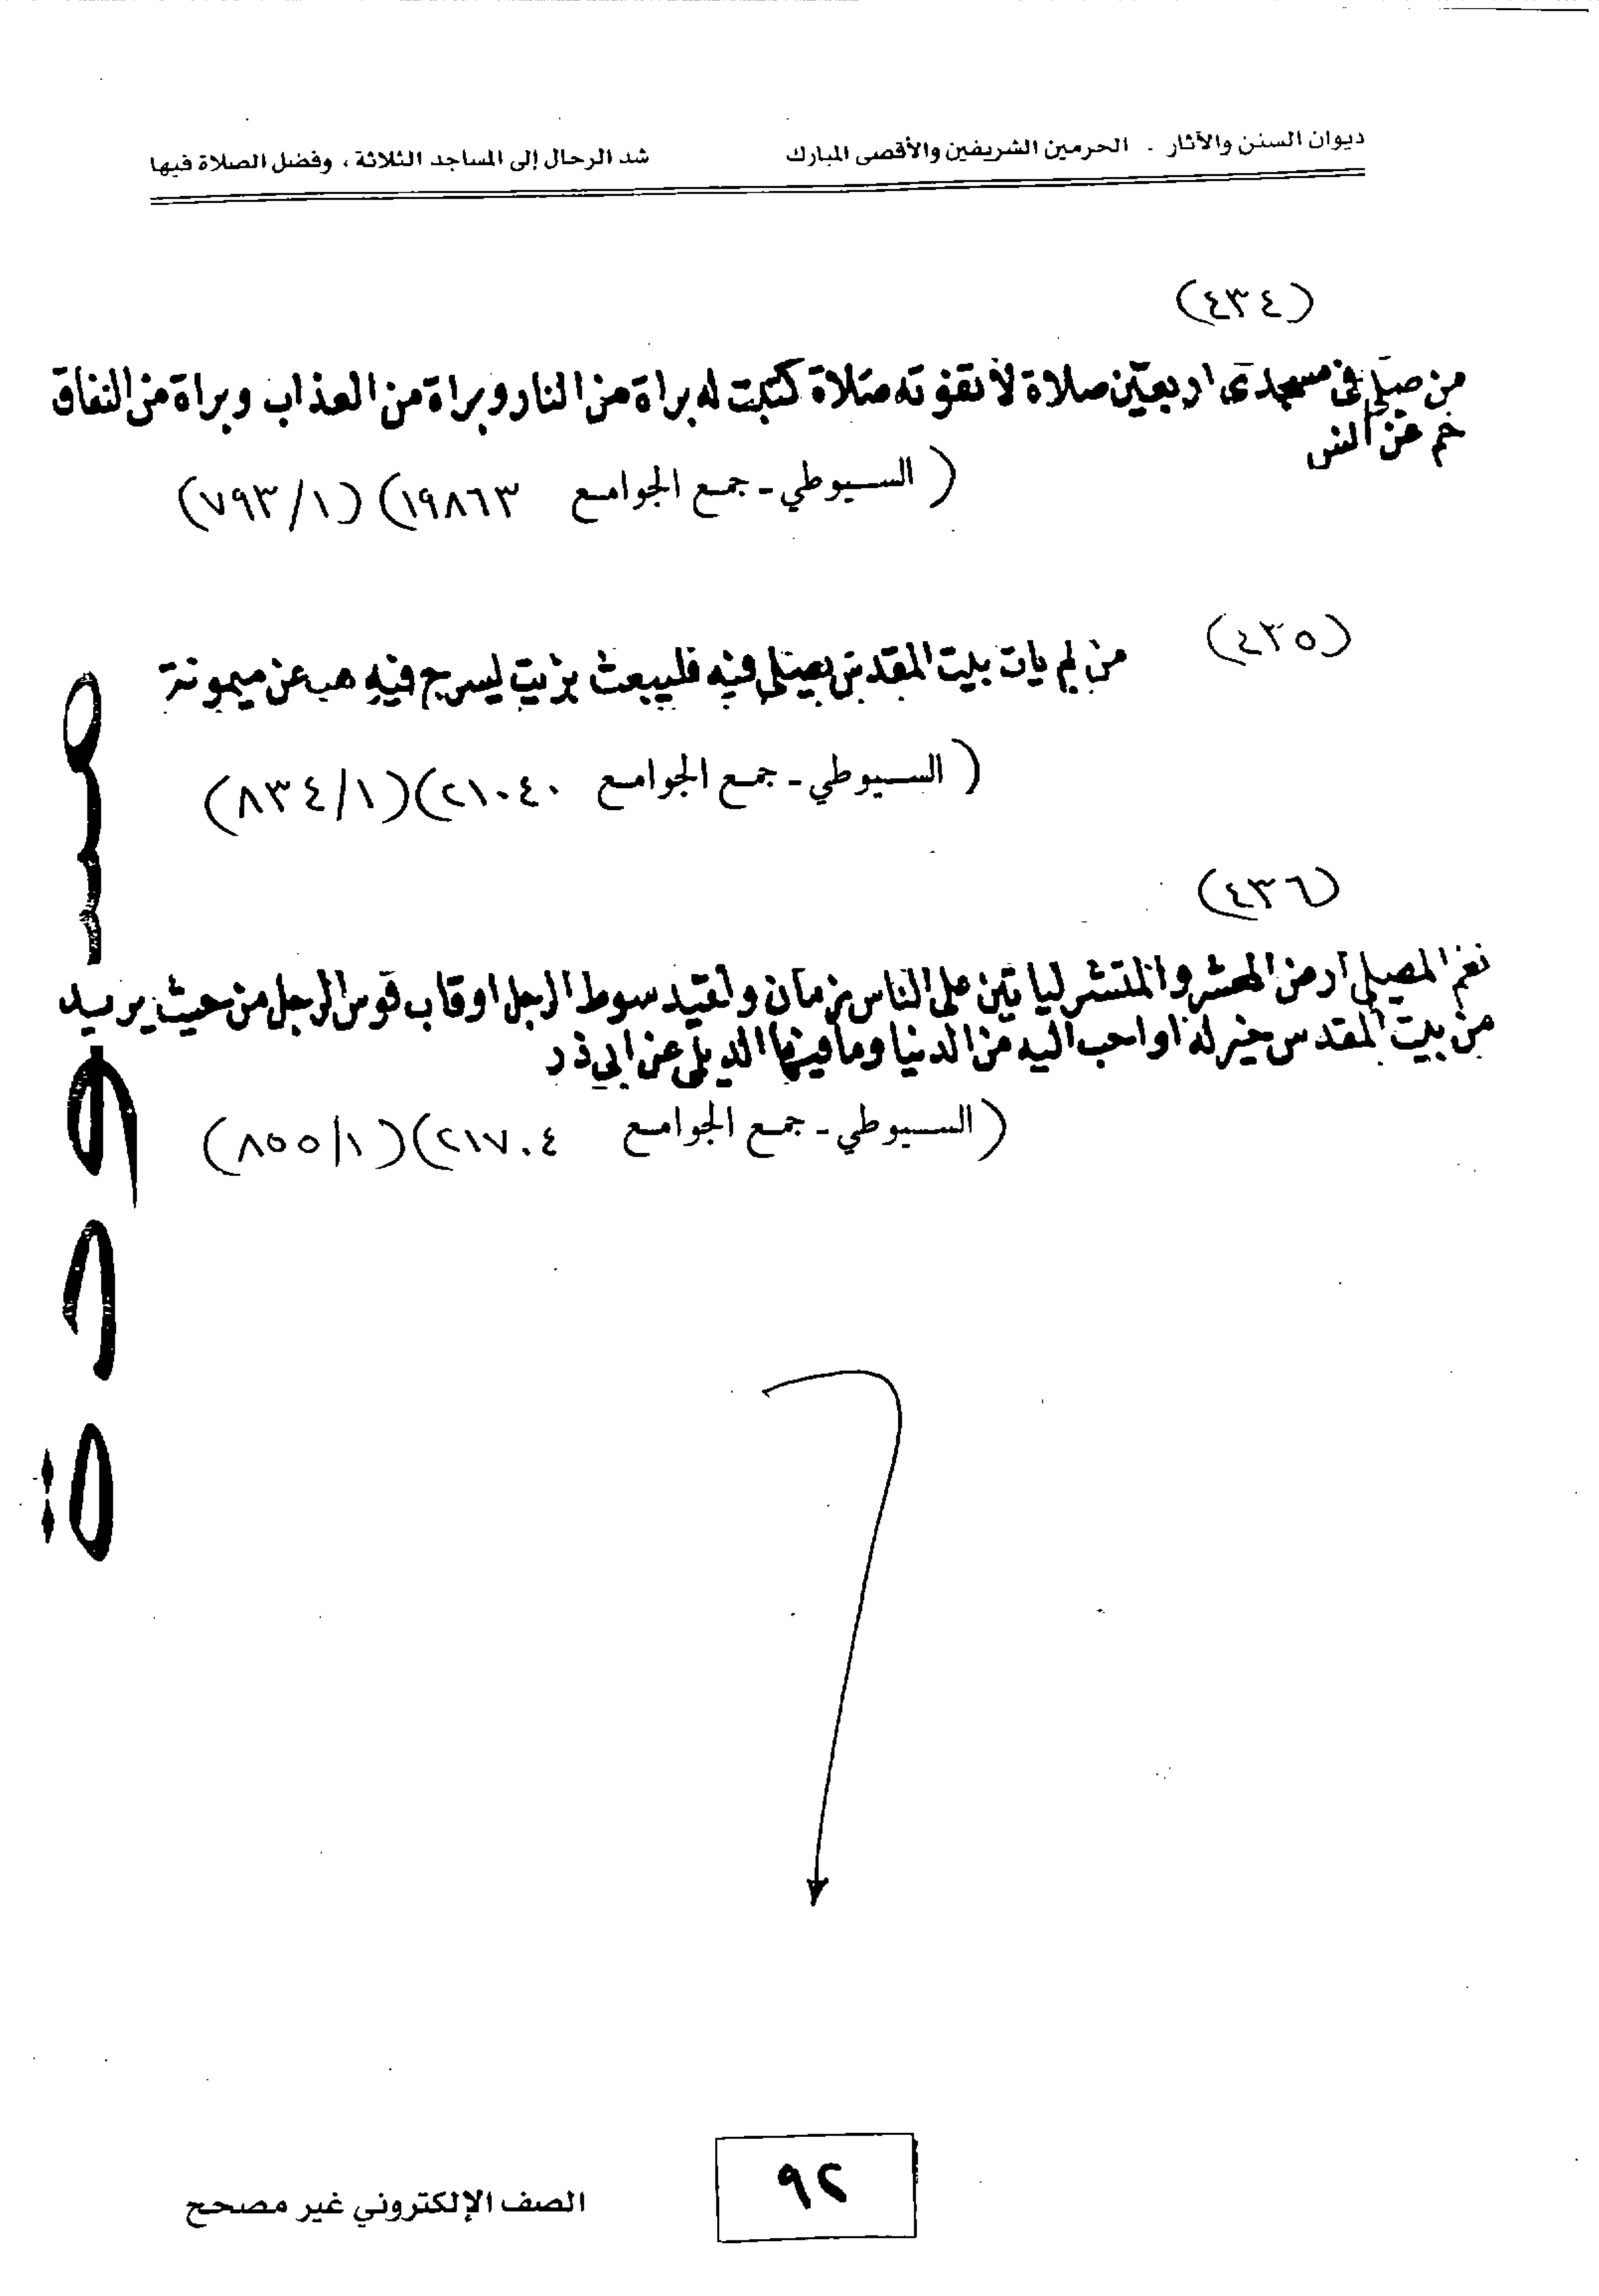 ديوان السنن والآثار - الحرمين الشريفين والأقصى المبارك شد الرحال إلى المساجد الثلاثة ، وفضل الصلاة فيها
(٤٣٤)
من صلى فى مسجدى اربعين صلاة لا تفوته صلاة كتبت له براة من النار وبراة من العذاب وبراة من النفاق
حم عن انس
( السيوطي - جمع الجوامع ١٩٨٦٣) (٧٩٣/١)
(٤٣٥) من لم يات بيت المقدس يصلى فيه فليبعث بزيت ليسرج فيه هب عن ميمونة
( السيوطي - جمع الجوامع ٢١٠٤٠)(٨٣٤/١)
(٤٣٦)
نعم المصلى ارض المحشر والمنتشر لياتين على الناس زمان ولقيد سوط الرجل او قاب قوس الرجل من حيث يرى
من بيت المقدس خير له او احب اليه من الدنيا وما فيها الديلى عن ابى ذر
(السيوطي - جمع الجوامع ٢١٧٠٤)(٨٥٥/١)
٩٢
الصف الإلكتروني غير مصحح